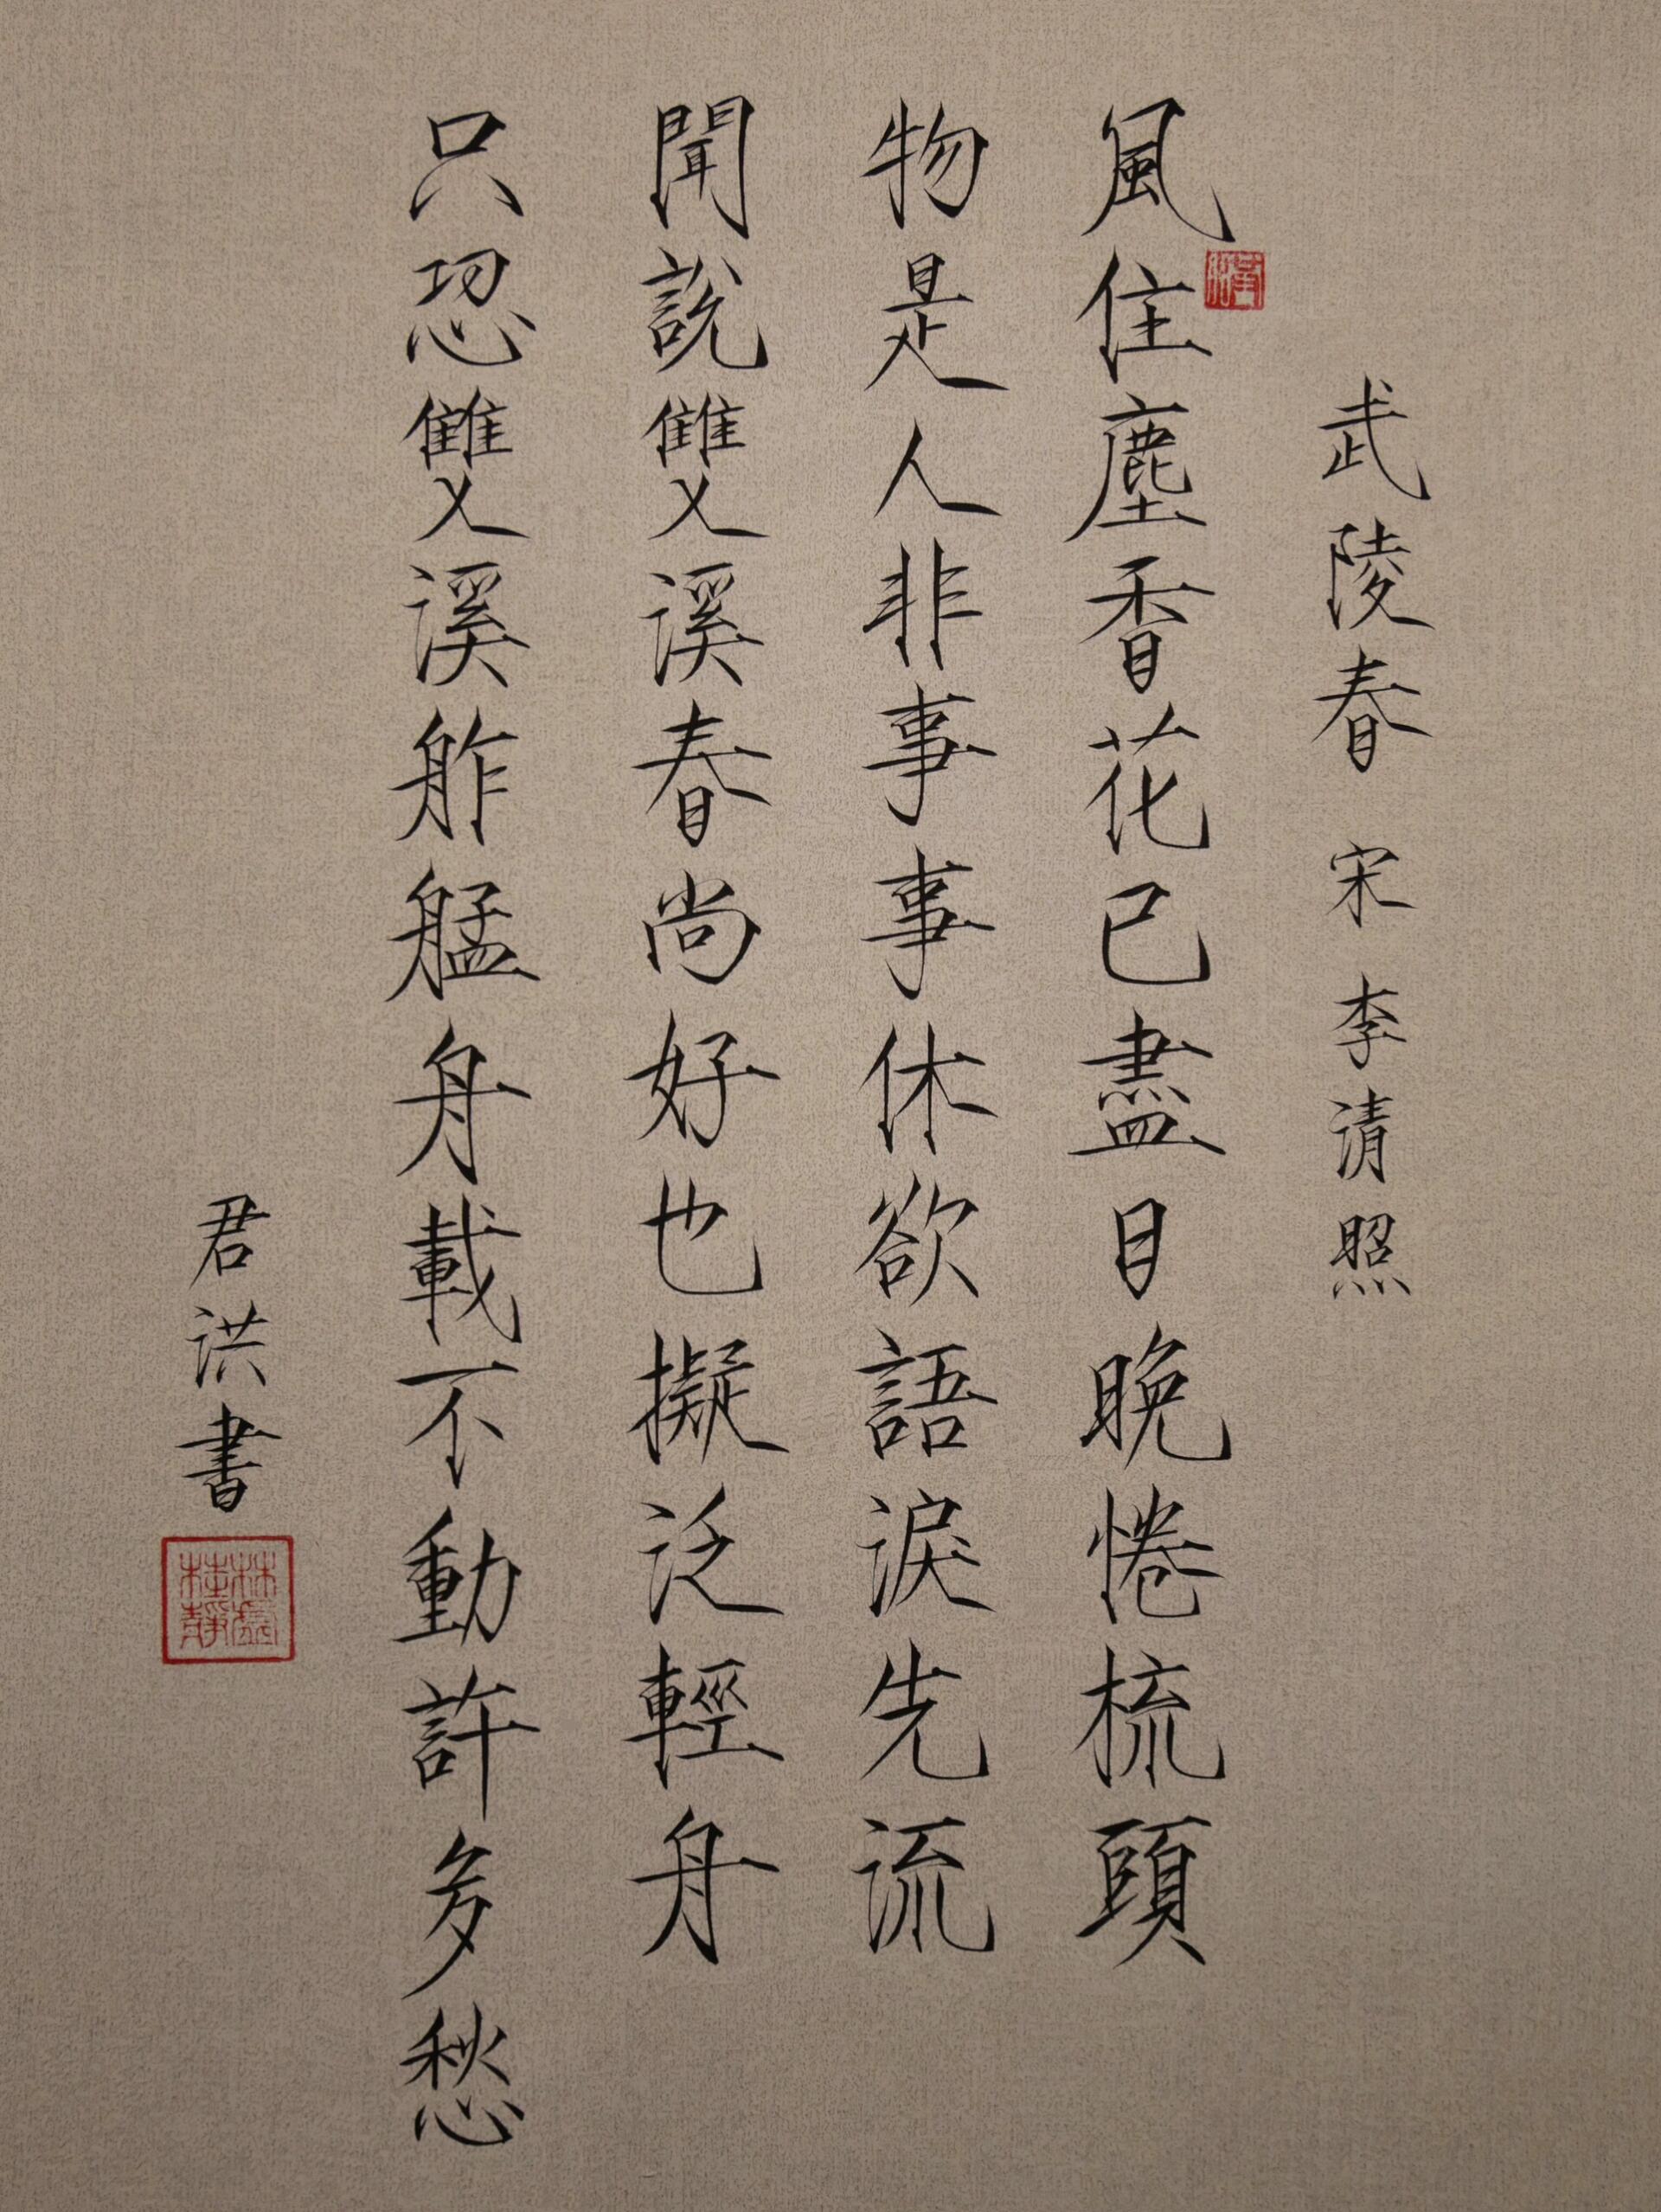 武陵春 宋 李清照
風住塵香花已盡日晚惓梳頭
物是人非事事休欲語淚先流
聞說雙溪春尚好也擬泛輕舟
只恐雙溪舴艋舟載不動許多愁
君洪書